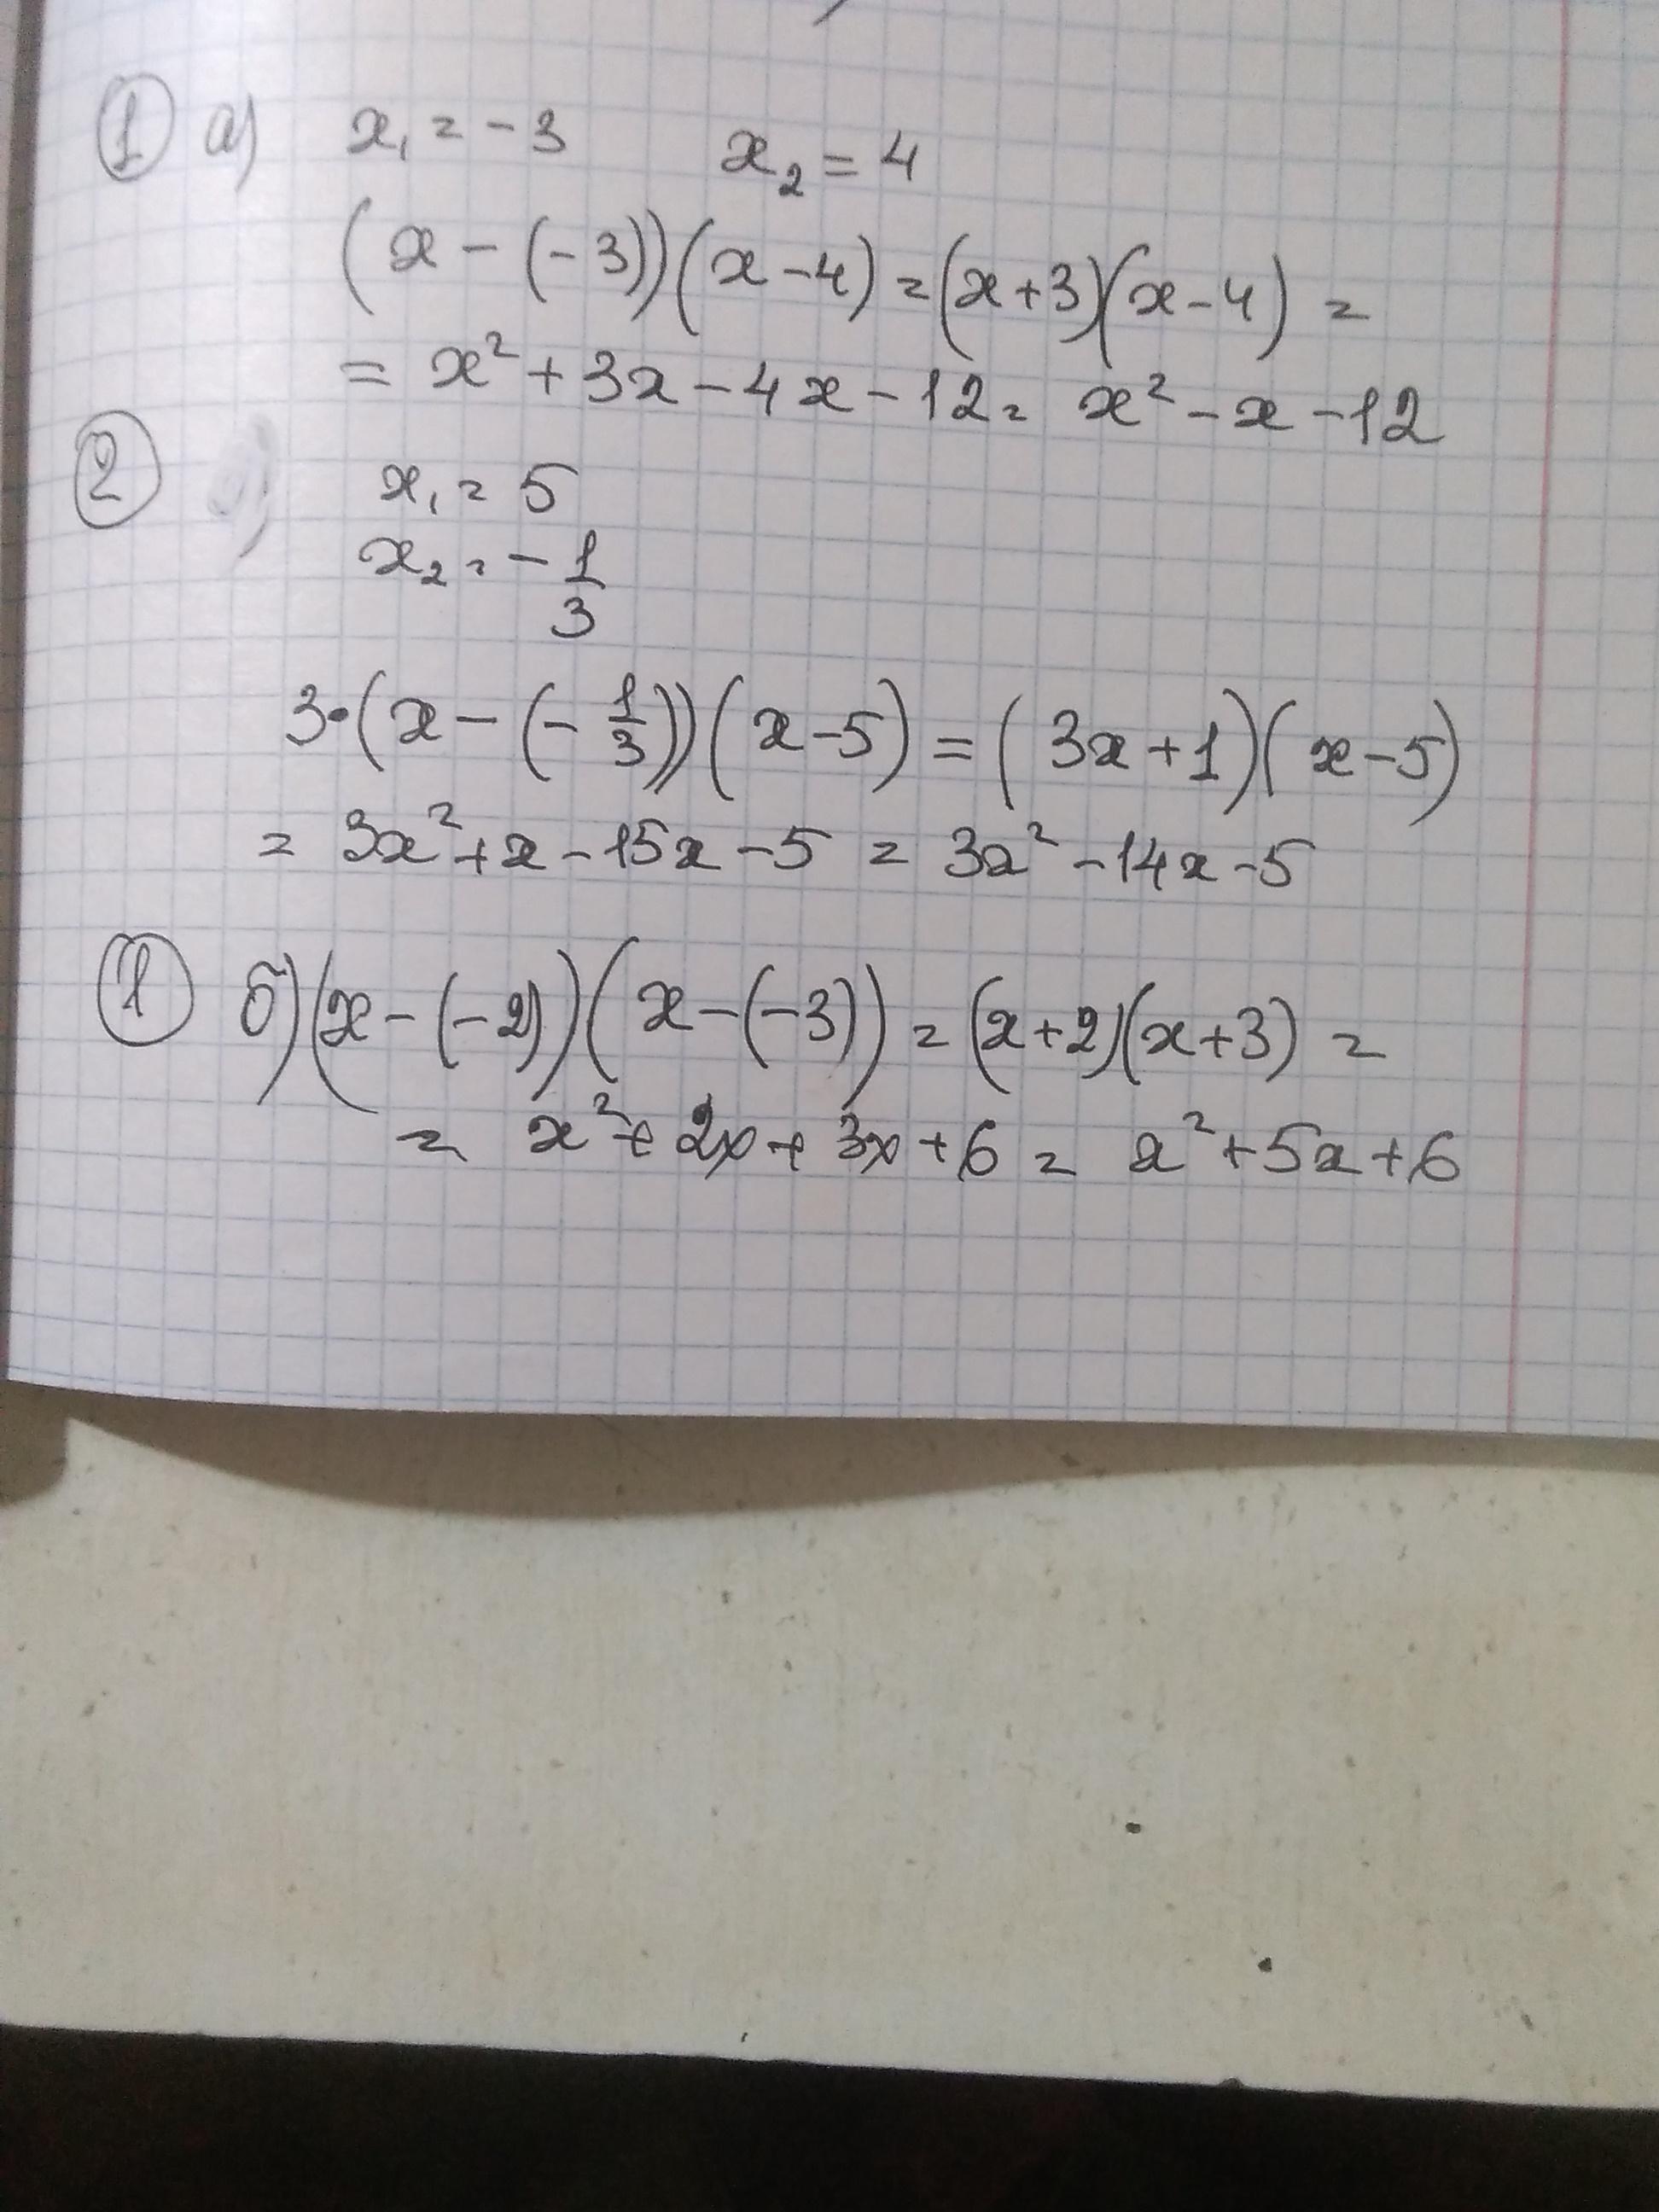 ① а) x₁ = -3 x₂ = 4
(x - (-3))(x - 4) = (x+3)(x-4) =
= x² + 3x - 4x - 12 = x² - x - 12
② x₁ = 5
x₂ = - 1/3
3·(x - (- 1/3))(x - 5) = (3x + 1)(x - 5)
= 3x² + x - 15x - 5 = 3x² - 14x - 5
① б) (x - (-2))(x - (-3)) = (x+2)(x+3) =
= x² + 2x + 3x + 6 = x² + 5x + 6